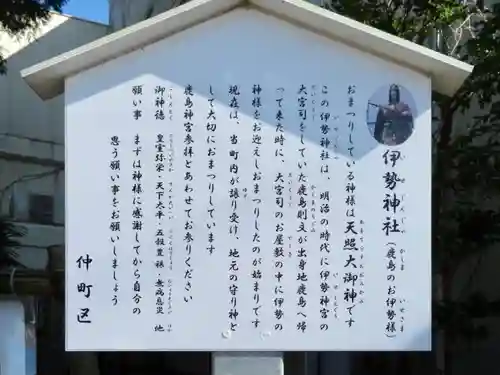 伊勢神社(鹿島のお伊勢様)
おまつりしている神様は天照大御神です
この伊勢神社は、明治の時代に伊勢神宮の
大宮司をしていた鹿島則文が出身地鹿島へ帰
って来た時に、大宮司のお屋敷の中に伊勢の
神様をお迎えしおまつりしたのが始まりです
現在は、当町内が譲り受け、地元の守り神と
して大切におまつりしています
鹿島神宮参拝とあわせてお参りください
御神徳 皇室弥栄・天下太平・五穀豊穣・無病息災 他
願い事 まずは神様に感謝してから自分の
思う願い事をお願いしましょう
仲町区